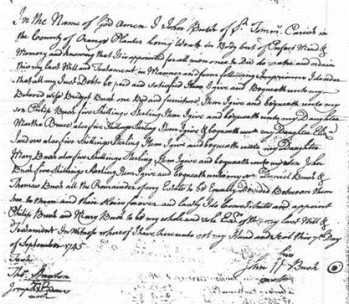 In the Name of God Amen I John Bush of St Toms Parish in
the County of Orange Planter being Weak in Body but of Perfect Mind &
Memory and knowing that it is appointed for all men once to Die do make and ordain
this my last Will and Testament in Manner and form following Imprimis I order
that all my Just Debts be paid and satisfied Item I give and bequeath unto my
Beloved wife Bridget Bush one Bed and furniture Item I give and bequeath unto my
son Philip Bush five Shillings Sterling Item I give and bequeath unto my Daughter
Martha also five Shillings Sterling Item I give & bequeath unto my Daughter
also five Shillings Sterling Item I give and bequeath unto my Daughter
Mary Bush also five Shillings Sterling Item I give and bequeath unto my son John
Bush five Shillings Sterling Item I give and bequeath unto my sons Daniel Bush &
Thomas Bush all the Remainder of my Estate to be Equally Divided Between them
two to them and their Heirs forever and lastly I do Constitute and appoint
Philip Bush and Mary Bush to be my whole and sole of this my last Will &
Testament In Witness whereof I have hereunto set my Hand and Seal this 7th Day
of September 1745
his
John Bush
Teste
Thos
Joseph
mark